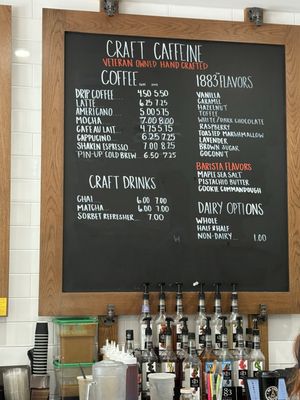 CRAFT CAFFEINE
VETERAN OWNED HAND CRAFTED
COFFEE
DRIP COFFEE 4.50 5.50
LATTE 6.25 7.25
AMERICANO 5.00 5.75
MOCHA 7.00 8.00
CAFE AU LAIT 4.75 5.75
CAPPUCINO 6.25 7.25
SHAKEN ESPRESSO 7.00 8.25
PIN-UP COLD BREW 6.50 7.25
CRAFT DRINKS
CHAI 6.00 7.00
MATCHA 6.00 7.00
SORBET REFRESHER 7.00
1883 FLAVORS
VANILLA
CARAMEL
HAZELNUT
TOFFEE
WHITE/DARK CHOCOLATE
RASPBERRY
TOASTED MARSHMALLOW
LAVENDER
BROWN SUGAR
COCONUT
BARISTA FLAVORS
MAPLE SEA SALT
PISTACHIO BUTTER
COOKIE COMMANDOUGH
DAIRY OPTIONS
WHOLE
HALF & HALF
NON-DAIRY 1.00